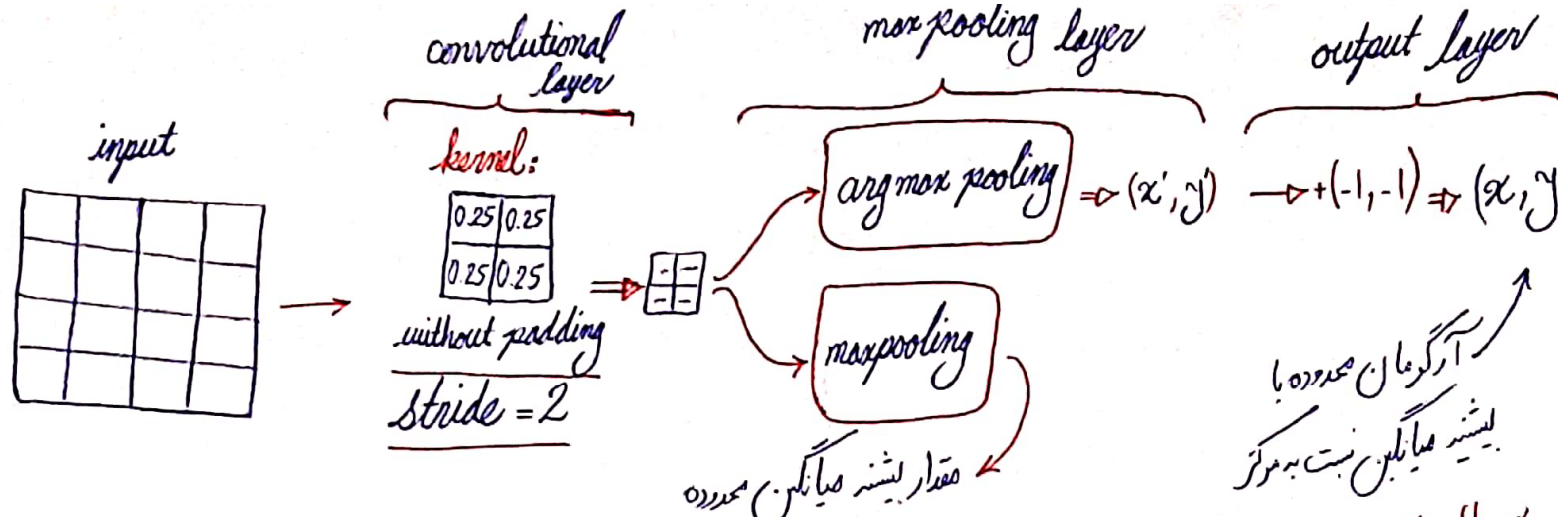 input
convolutional
layer
kernel:
0.25 0.25
0.25 0.25
without padding
stride = 2
max pooling layer
argmax pooling
⇒ (x', y')
maxpooling
مقدار بیشینه میانگین محدوده
output layer
→ +(-1, -1) ⇒ (x, y
آرگومان محدوده با
بیشینه میانگین نسبت به مرکز